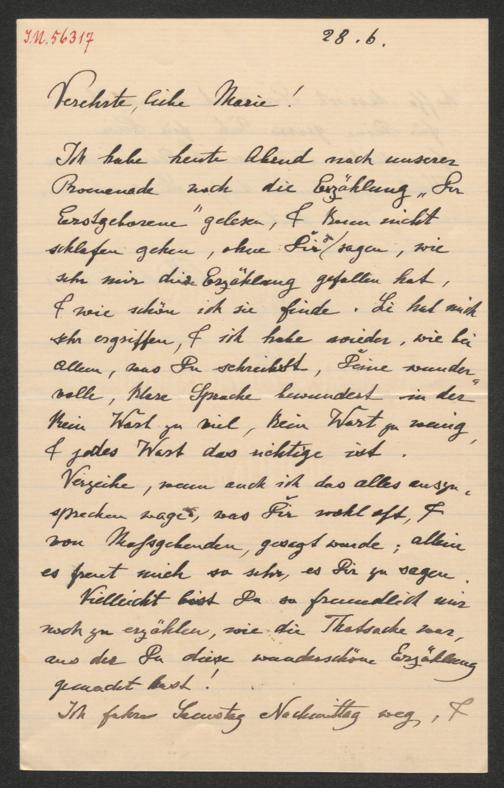 I.N. 56317
28. 6.
Verehrte, liebe Marie!
Ich habe heute Abend nach unserer
Promenade noch die Erzählung „Der
Erstgeborene" gelesen, & kann nicht
schlafen gehen, ohne Dir zu sagen, wie
sehr mir diese Erzählung gefallen hat,
& wie schön ich sie finde. Sie hat mich
sehr ergriffen, & ich habe wieder, wie bei
allem, was Du schreibst, Deine wunder-
volle, klare Sprache bewundert in der
kein Wort zu viel, kein Wort zu wenig,
& jedes Wort das richtige ist.
Verzeihe, wenn auch ich das alles auszu-
sprechen wage, was Dir wohl oft, &
von Maßgebenden, gesagt wurde; allein
es freut mich so sehr, es Dir zu sagen.
Vielleicht bist Du so freundlich mir
noch zu erzählen, wie die Thatsache war,
aus der Du diese wunderschöne Erzählung
gemacht hast!
Ich fahre Samstag Nachmittag weg, &